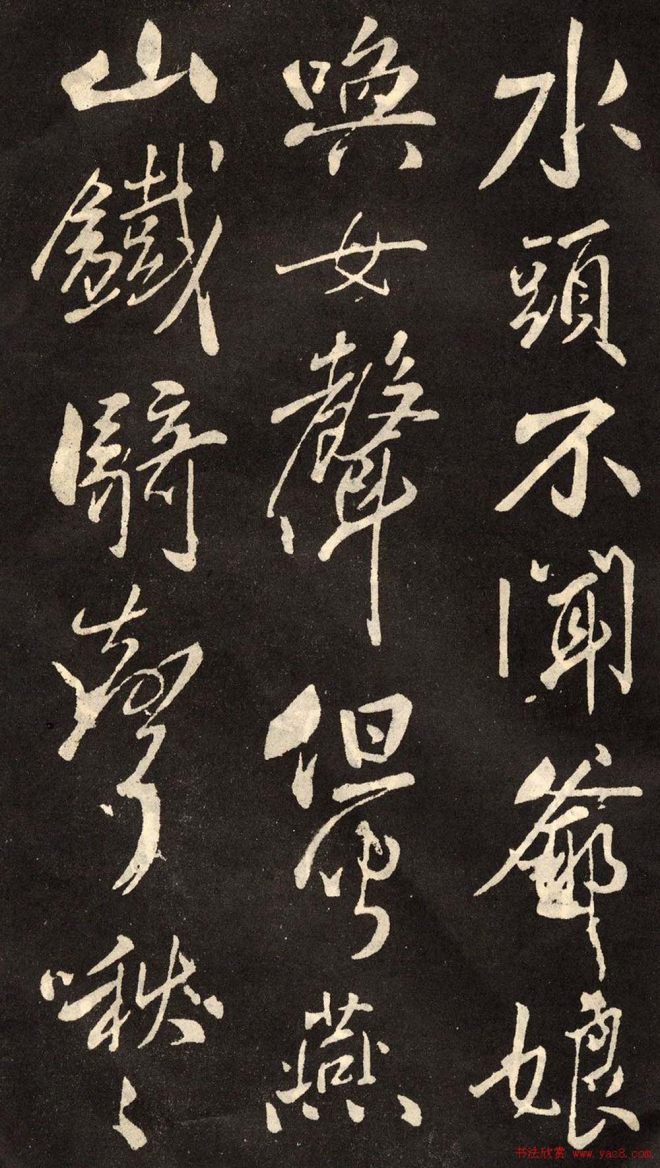 水頭不聞爺娘
喚女聲但聞燕
山鐵騎聲啾〻
书法欣赏 www.yac8.com